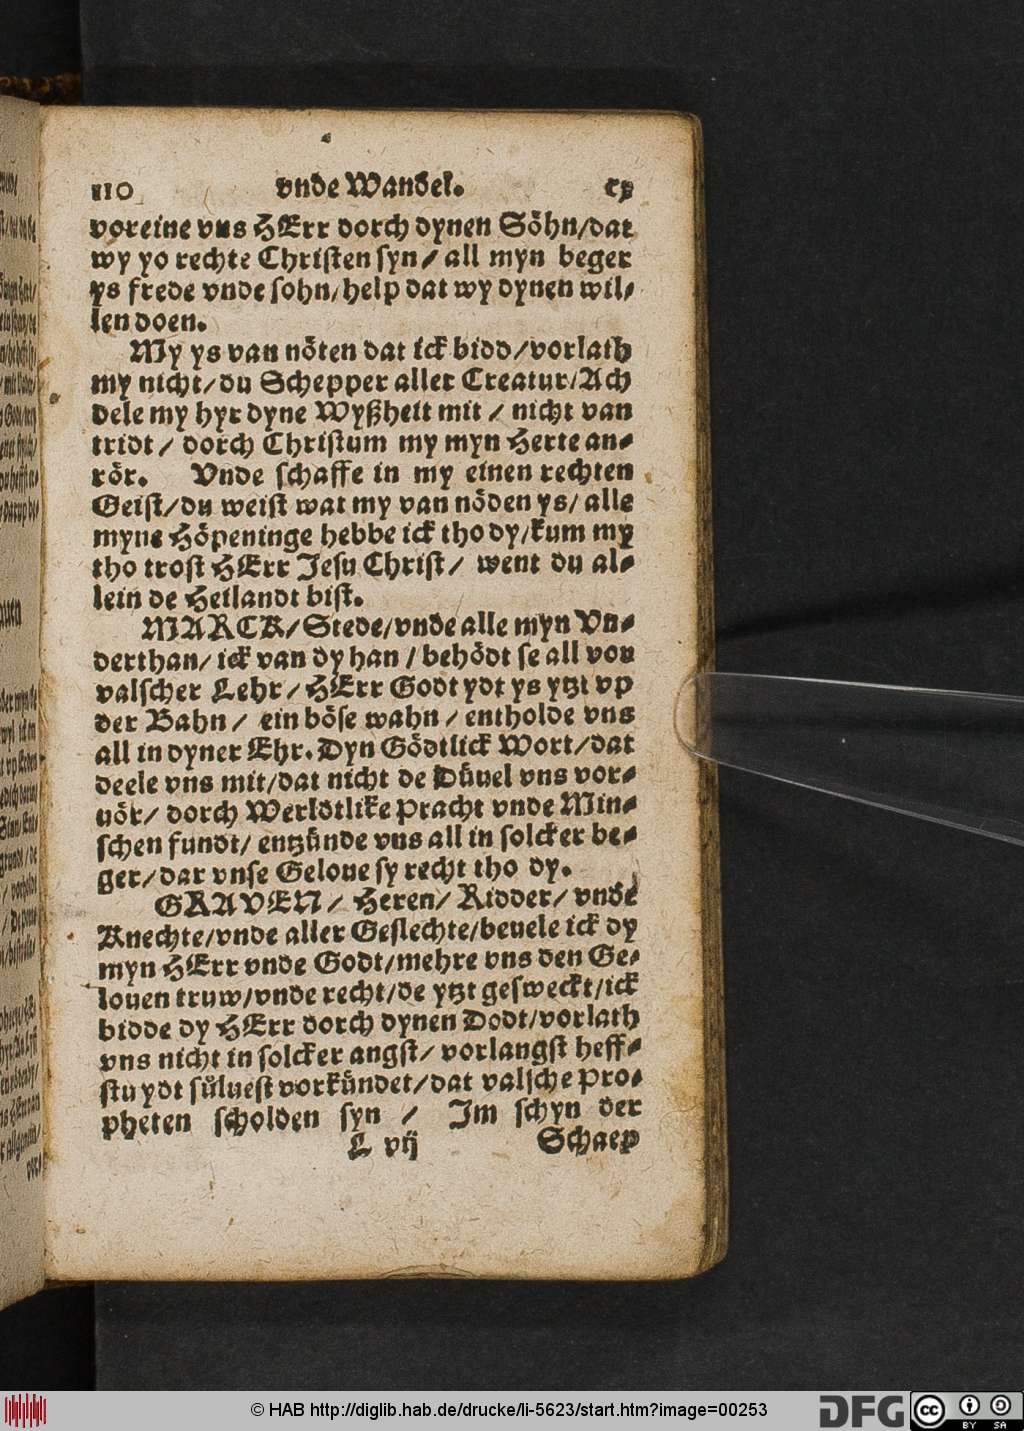 110 vnde Wandel. cx
voreine vns HErr dorch dynen Söhn/dat
wy yo rechte Christen syn/ all myn beger
ys frede vnde sohn/help dat wy dynen wil-
len doen.
My ys van nöten dat ick bidd/vorlath
my nicht/du Schepper aller Creatur/Ach
dele my hyr dyne Wyßheit mit / nicht van
tridt/ dorch Christum my myn Herte an-
rör. Vnde schaffe in my einen rechten
Geist/du weist wat my van nöden ys/ alle
myne Höpeninge hebbe ick tho dy/kum my
tho trost HErr Jesu Christ/ went du al-
lein de Heilandt bist.
MARCK/Stede/vnde alle myn Vn-
derthan/ ick van dy han / behödt se all vor
valscher Lehr/ HErr Godt ydt ys ytzt vp
der Bahn/ ein böse wahn/ entholde vns
all in dyner Ehr. Dyn Gödtlick Wort/dat
deele vns mit/dat nicht de Düuel vns vor-
uör/ dorch Werldtlike Pracht vnde Min-
schen fundt/ entzünde vns all in solcker be-
ger/dar vnse Geloue sy recht tho dy.
GRAVEN/ Heren/ Ridder/ vnde
Knechte/vnde aller Geslechte/beuele ick dy
myn HErr vnde Godt/mehre vns den Ge-
louen truw/vnde recht/de ytzt gesweckt/ick
bidde dy HErr dorch dynen Dodt/vorlath
vns nicht in solcker angst/ vorlangst heff-
stu ydt süluest vorkündet/dat valsche Pro-
pheten scholden syn / Jm schyn der
L vij Schaep
© HAB http://diglib.hab.de/drucke/li-5623/start.htm?image=00253
DFG
cc BY SA